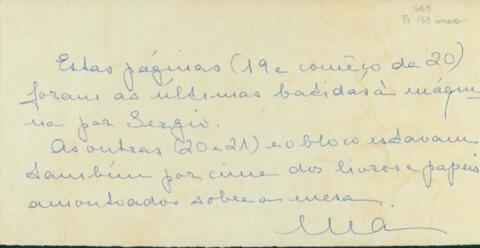 SBH
Pi 158 anexo
Estas páginas (19 e comêço de 20)
foram as últimas batidas à máqui
na por Sergio.
As outras (20 e 21) e o bloco estavam
também por cima dos livros e papeis
amontoados sobre a mesa.